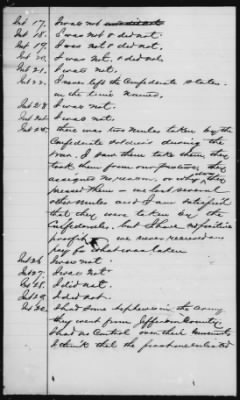 Int 17. I was not
Int 18. I was not & did not.
Int 19. I was not & did not,
Int 20. I was not, & did not
Int 21. I was not,
Int 22. I never left the Confederate States
in the time named,
I was not.
I was not,
Int 25. there was two mules taken by the
Confederate soldiers during the
war. I saw them take them, they
took them from our pasture, they
assigned no reason, or why they
pressed them - we lost several
other mules and I am satisfied
that they were taken by the
Confederates, but I have no positive
proof, we never received any
pay for what was taken
Int 26. I was not
Int 27. I was not
Int 28. I did not.
Int 29. I did not.
Int 30. I had some nephews in the army
they went from Jefferson County
I had no control over their movements
I think that the first one enlisted